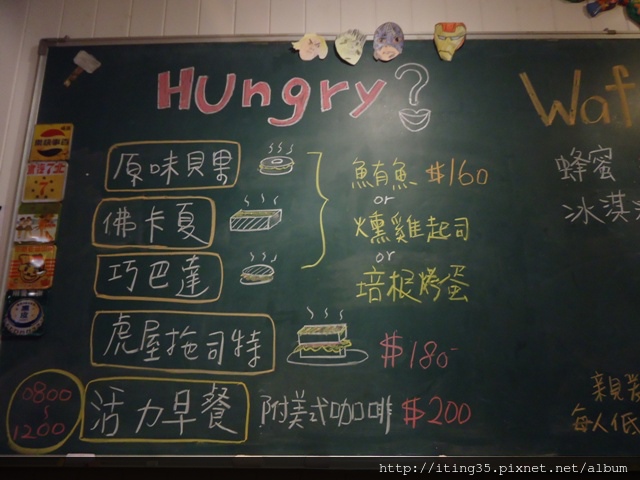 Hungry?
原味貝果
佛卡夏
巧巴達
鮪魚 $160
or
燻雞起司
or
培根烤蛋
虎屋拖司特 $180
0800
~
1200
活力早餐 附美式咖啡 $200
Waf
蜂蜜
冰淇
每人低
http://iting35.pixnet.net/album